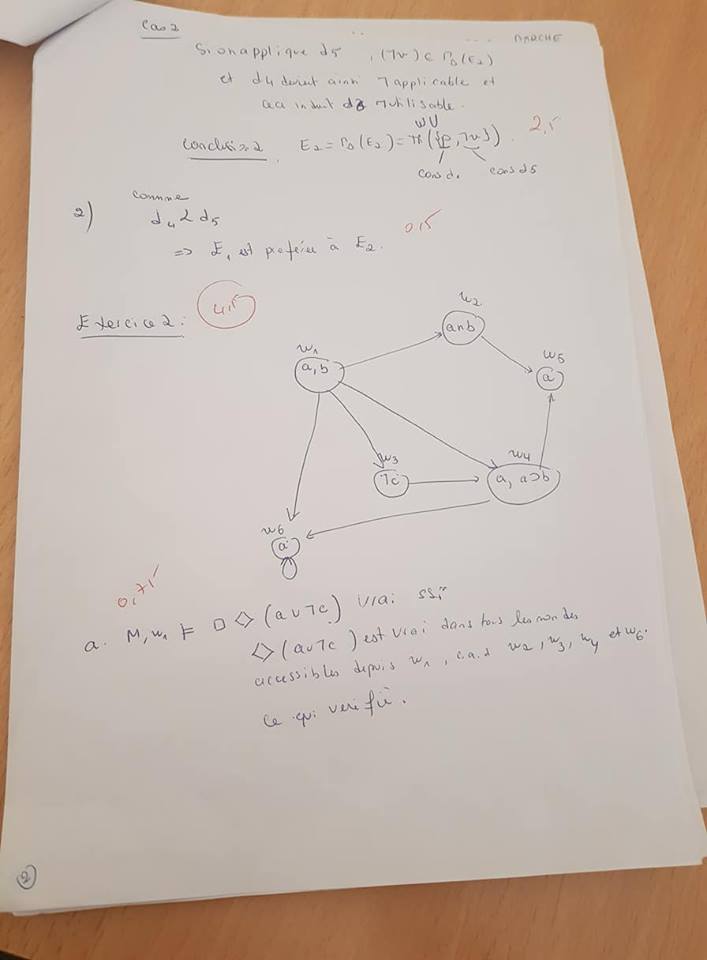 Cas 2
Si on applique d5, (¬v) ∈ ΓΔ(E2)
et d4 devient ainsi ¬applicable et
ceci induit d2 ¬utilisable.
Conclusion 2 E2 = ΓΔ(E2) = Th(WU{p, ¬v}) 2,5
cons d1 cons d5
2) comme
d4 < d5
=> E1 est préférée à E2. 0,5
Exercice 2: 4,5
w2
a∧b
w1
a, b
w5
a
w3
¬c
w4
a, a⊃b
w6
a
0,75
a. M, w1 ⊨ □ ◇ (a∪¬c) vrai ssi
◇ (a∪¬c) est vrai dans tous les mondes
accessibles depuis w1, c.a.d w2, w3, w4 et w6.
Ce qui verifié.
2